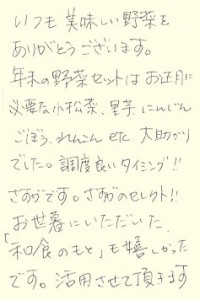 いつも美味しい野菜を
ありがとうございます。
年末の野菜セットはお正月に
必要な小松菜、里芋、にんじん
ごぼう、れんこん etc 大助かり
でした。調度良いタイミング!!
さすがです。さすがのセレクト!!
お世暮にいただいた
「和食のもと」も嬉しかった
です。活用させて頂きます